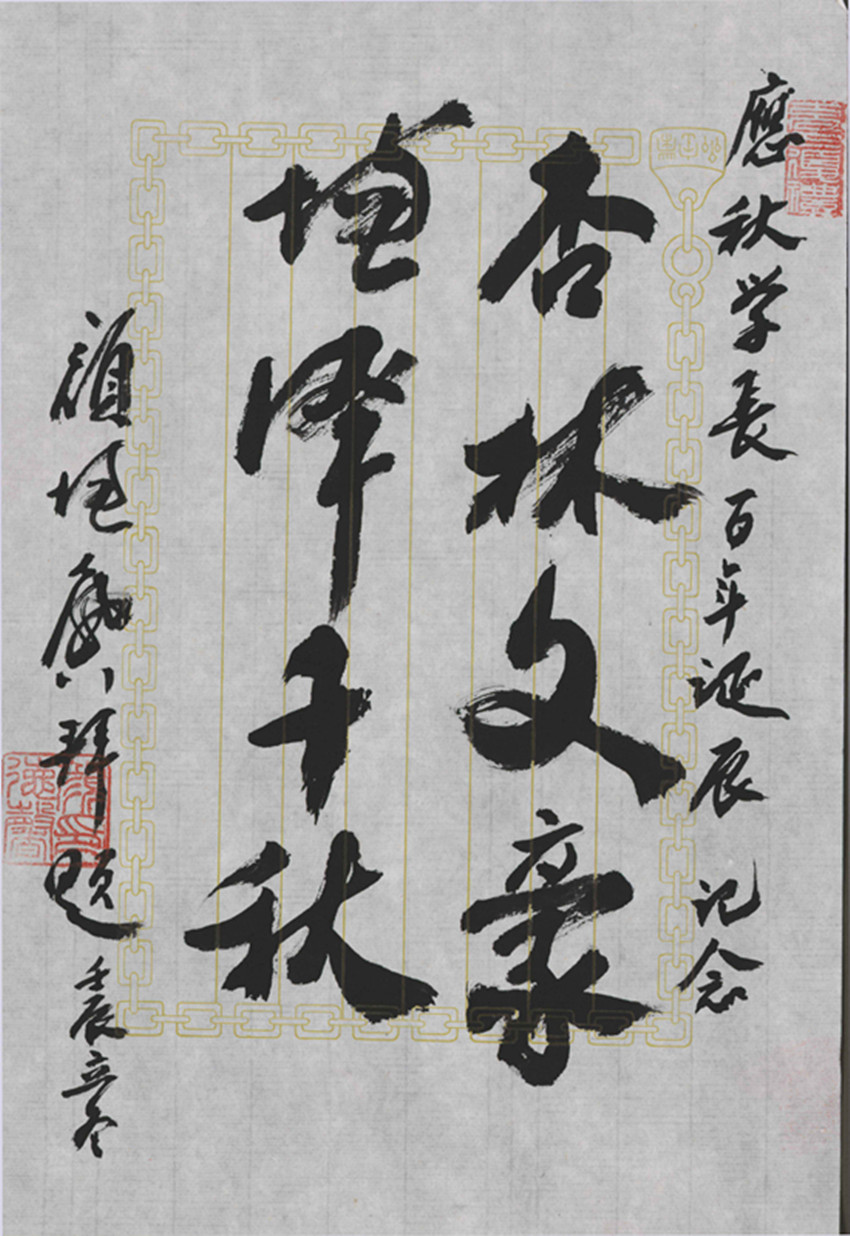 應秋学長百年诞辰 记念
杏林文豪
德泽千秋
颜德馨拜题 壬辰立冬